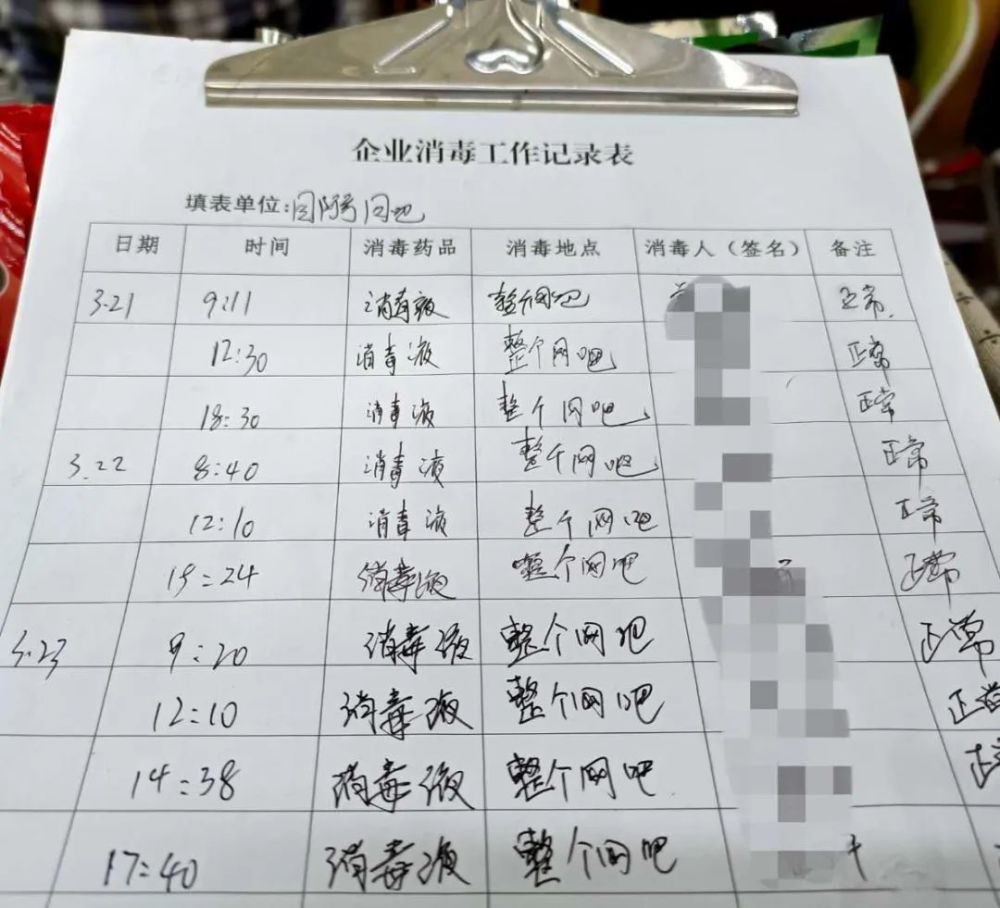 企业消毒工作记录表
填表单位:
日期 时间 消毒药品 消毒地点 消毒人（签名） 备注
3.21 9:11 消毒液 整个网吧 正常
12:30 消毒液 整个网吧 正常
18:30 消毒液 整个网吧 正常
3.22 8:40 消毒液 整个网吧 正常
12:10 消毒液 整个网吧 正常
19:24 消毒液 整个网吧 正常
3.23 9:20 消毒液 整个网吧 正常
12:10 消毒液 整个网吧 正常
14:38 消毒液 整个网吧 正
17:40 消毒液 整个网吧